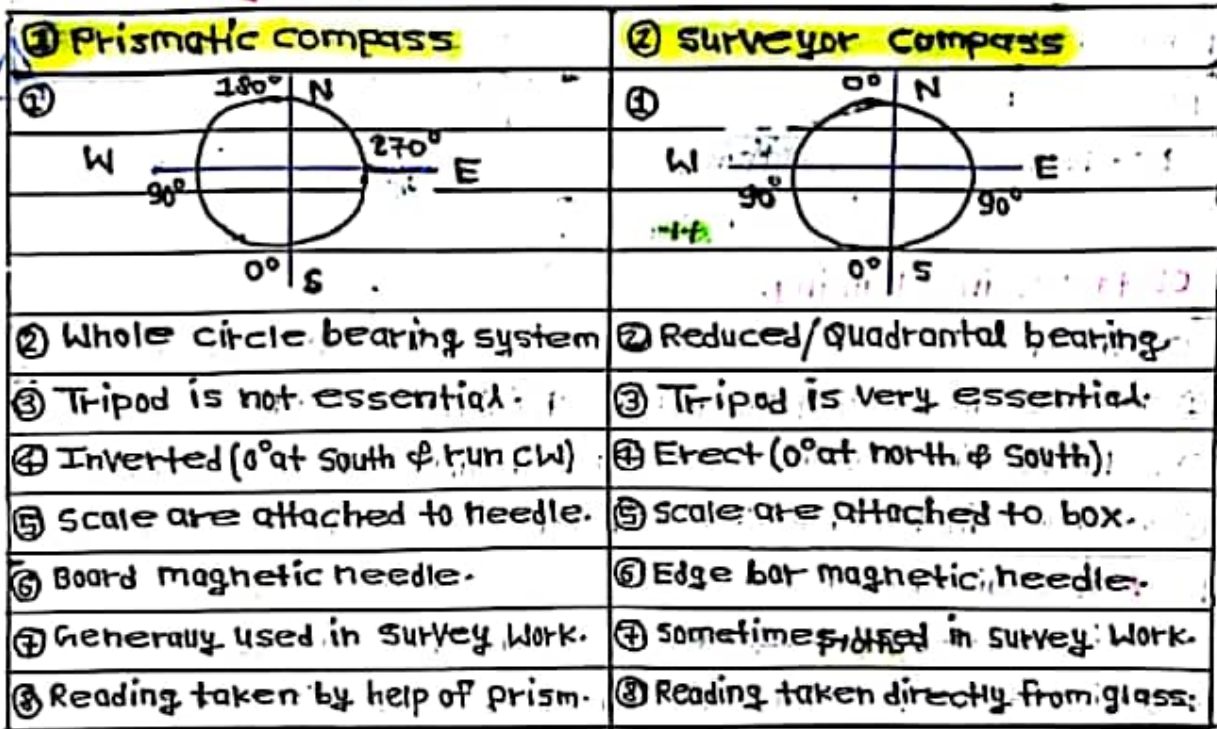 ① Prismatic compass
② Surveyor compass
①
180° N
W 270° E
90°
0° S
①
0° N
W E
90° 90°
0° S
② Whole circle bearing system
② Reduced/Quadrantal bearing
③ Tripod is not essential.
③ Tripod is very essential.
④ Inverted (0° at South & run CW)
④ Erect (0° at north & South)
⑤ Scale are attached to needle.
⑤ Scale are attached to box.
⑥ Board magnetic needle.
⑥ Edge bar magnetic needle.
⑦ Generally used in Survey Work.
⑦ Sometimes used in survey Work.
⑧ Reading taken by help of prism.
⑧ Reading taken directly from glass.